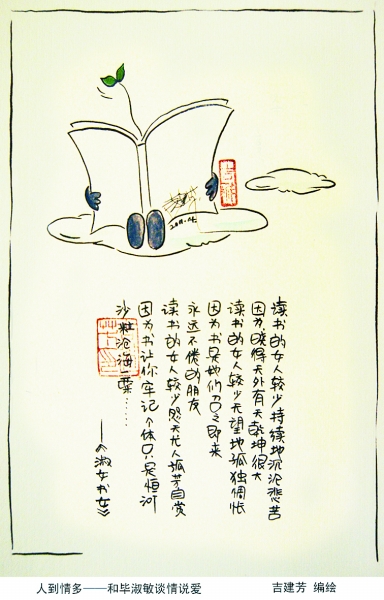 读书的女人较少持续地沉沦悲苦
因为晓得天外有天乾坤很大
读书的女人较少无望地孤独惆怅
因为书是她们召之即来
永远不倦的朋友
读书的女人较少怨天尤人孤芳自赏
因为书让你牢记个体只是恒河
沙粒沧海一粟……
——《淑女书女》
人到情多——和毕淑敏谈情说爱 吉建芳 编绘